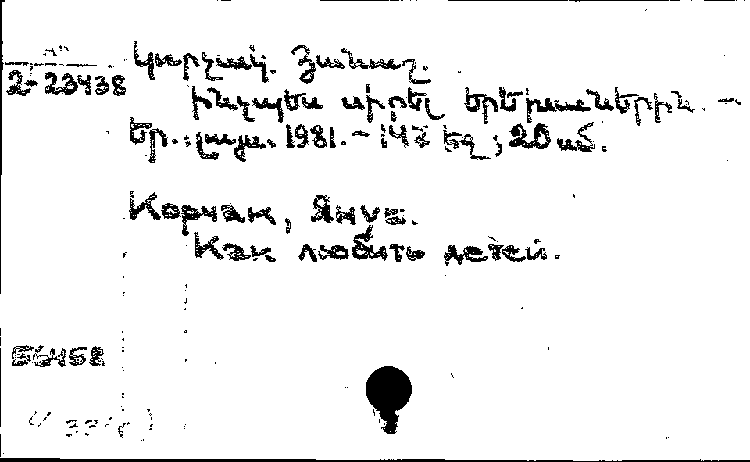 2-23438
Կորչակ. Յանուշ.
Ինչպես սիրել երեխաներին. —
Եր.: լույս. 1981. — 147 էջ ; 20 սմ.
Корчак, Януш.
Как любить детей.
56458